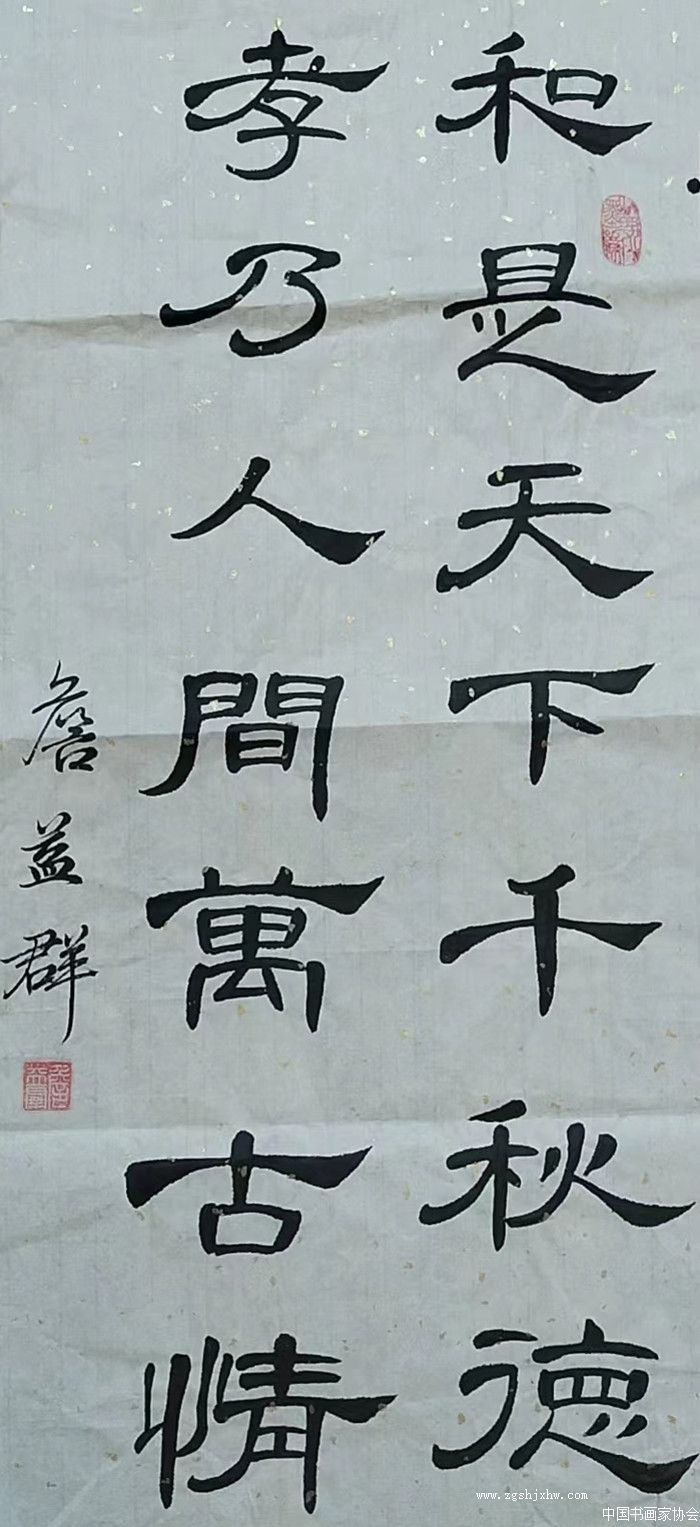 和是天下千秋德
孝乃人間萬古情
詹益群
www.zgshjxhw.com
中国书画家协会